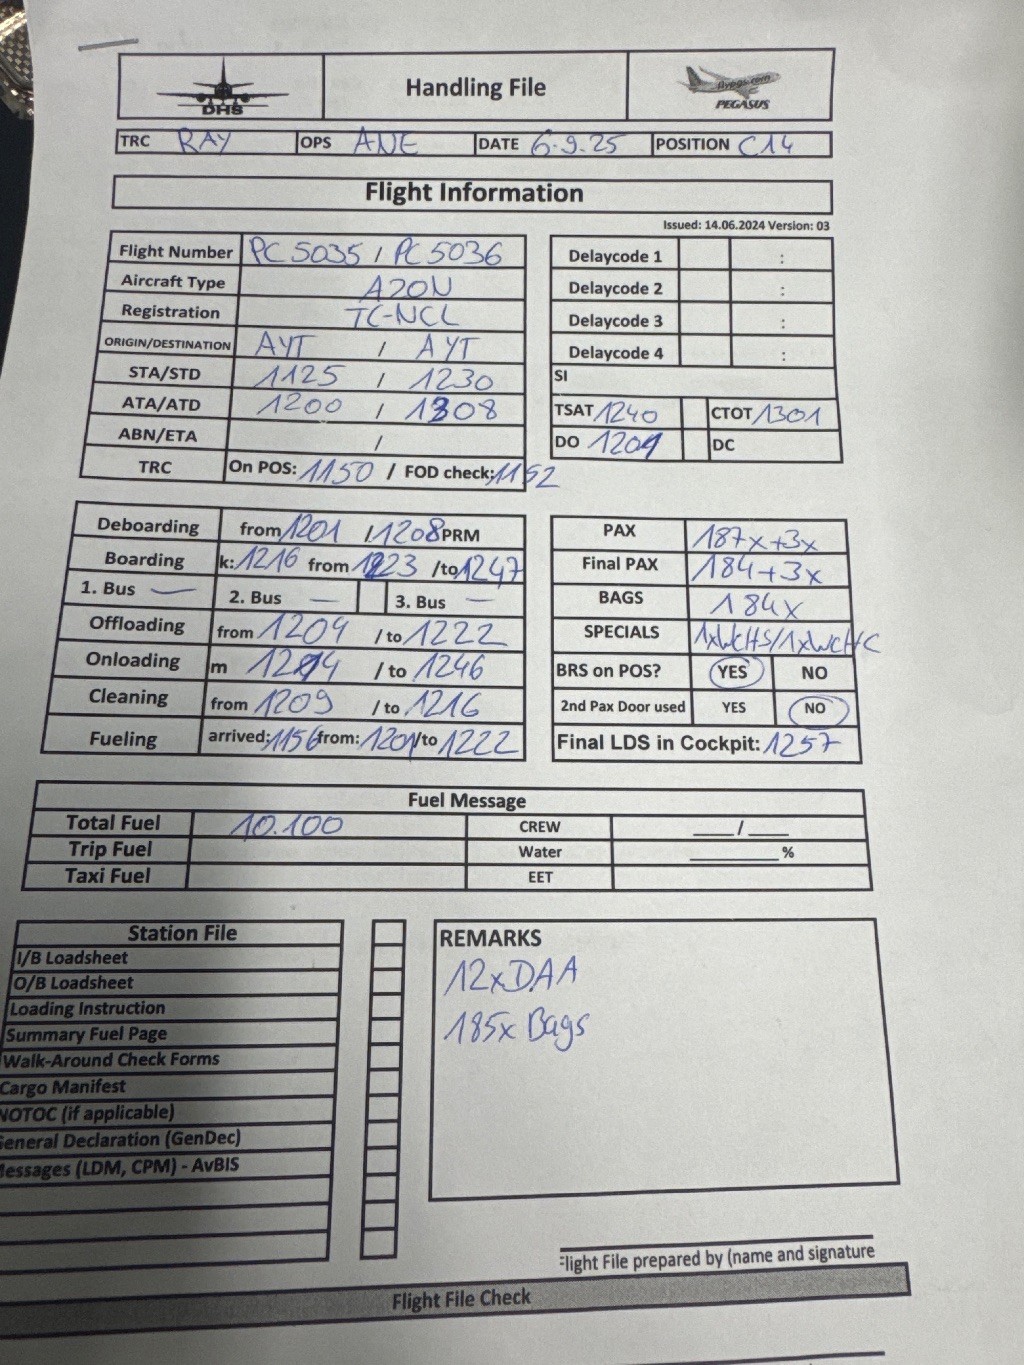 DHS
Handling File
flypgs.com
PEGASUS
TRC RAY OPS ANE DATE 6.9.25 POSITION C14
Flight Information
Issued: 14.06.2024 Version: 03
Flight Number PC 5035 / PC 5036
Aircraft Type A20N
Registration TC-NCL
ORIGIN/DESTINATION AYT / AYT
STA/STD 1125 / 1230
ATA/ATD 1200 / 1308
ABN/ETA /
TRC On POS: 1150 / FOD check: 1152
Delaycode 1 :
Delaycode 2 :
Delaycode 3 :
Delaycode 4 :
SI
TSAT 1240 CTOT 1301
DO 1201 DC
Deboarding from 1201 / 1208 PRM
Boarding k: 1216 from 1223 /to 1247
1. Bus — 2. Bus — 3. Bus —
Offloading from 1204 / to 1222
Onloading m 1214 / to 1246
Cleaning from 1209 / to 1216
Fueling arrived: 1156 from: 1201 /to 1222
PAX 187x+3x
Final PAX 184+3x
BAGS 184x
SPECIALS 1xWCHS/1xWCHC
BRS on POS? YES NO
2nd Pax Door used YES NO
Final LDS in Cockpit: 1257
Fuel Message
Total Fuel 10.100 CREW ____/____
Trip Fuel Water ________%
Taxi Fuel EET
Station File
I/B Loadsheet
O/B Loadsheet
Loading Instruction
Summary Fuel Page
Walk-Around Check Forms
Cargo Manifest
NOTOC (if applicable)
General Declaration (GenDec)
Messages (LDM, CPM) - AvBIS
REMARKS
12xDAA
185x Bags
Flight File prepared by (name and signature
Flight File Check